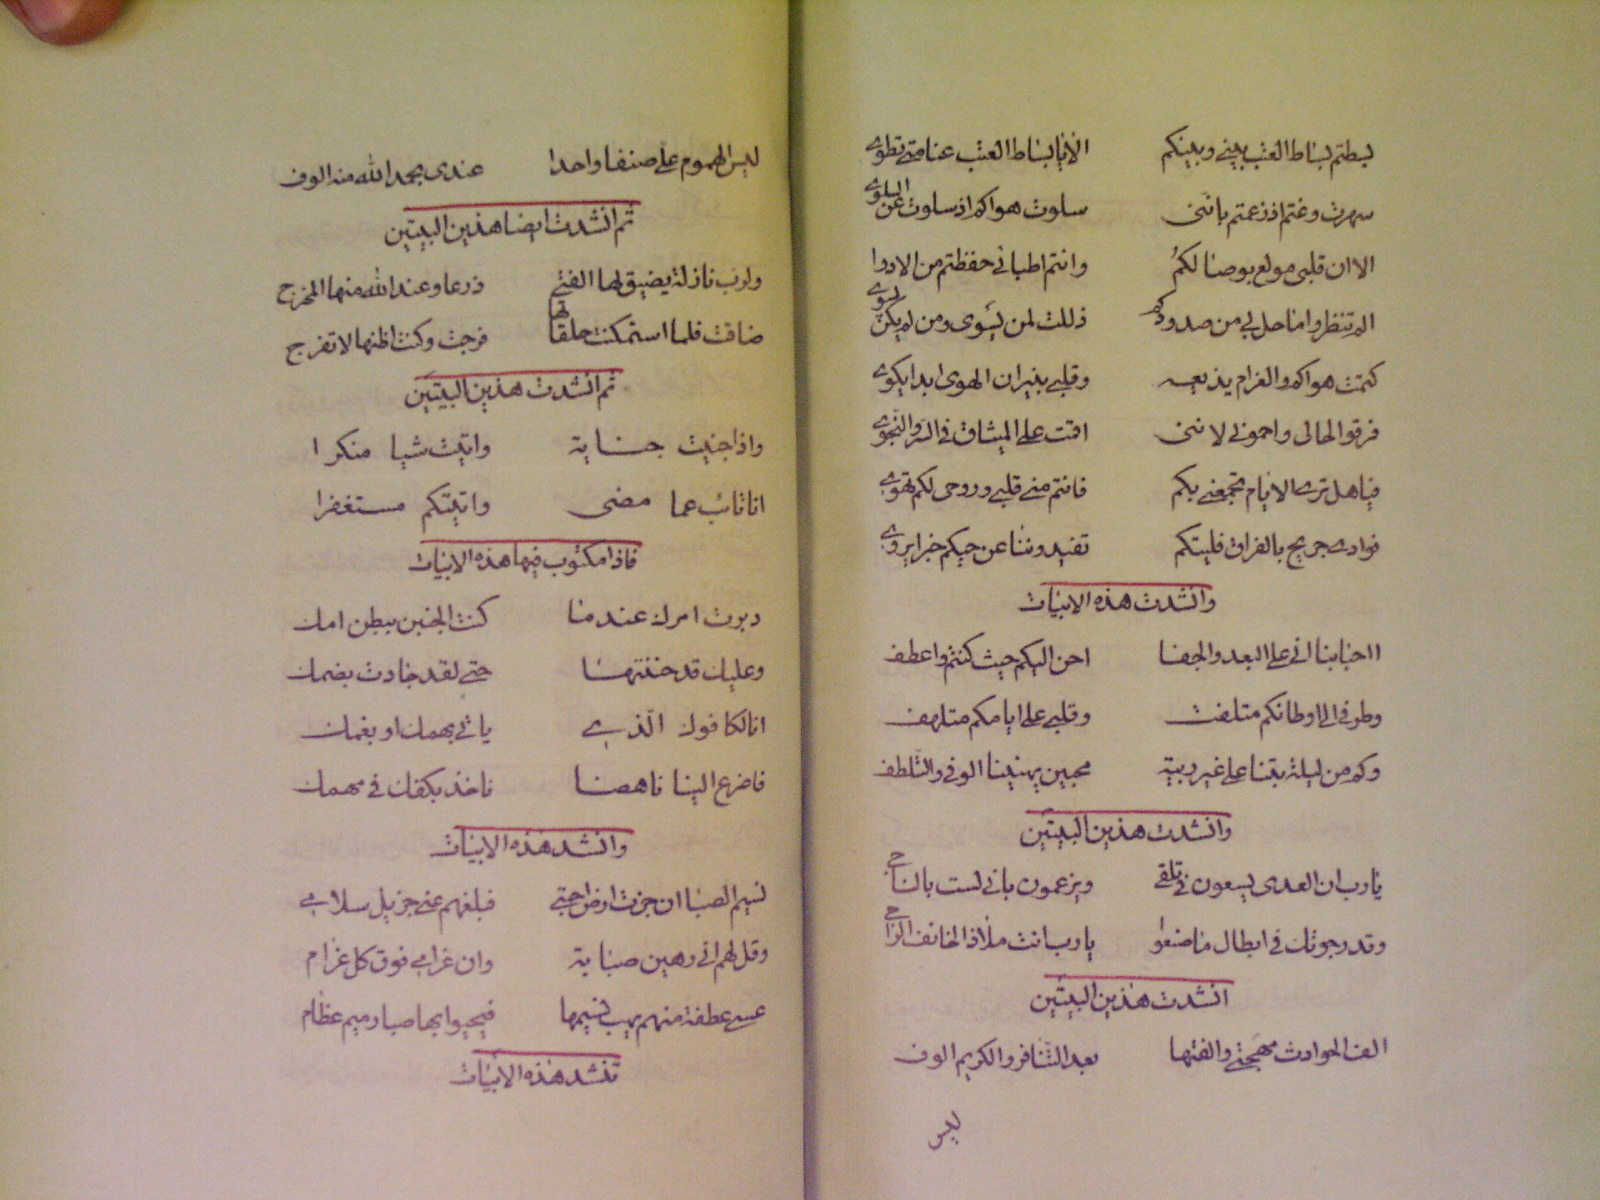 بسطتم بساط العتب بيني وبينكم الا يا بساط العتب عنا متى تطوى
سهرت وغتم اذ زعمتم بانني سلوت هواكم اذ سلوت عن السلوى
الا ان قلبي مولع بوصالكم وانتم اطباني حفظتم من الادوا
الم تنظروا ما حل بي من صدودكم ذللت لمن يسوى ومن لم يكن يسوى
كتمت هواكم والغرام يذيعه وقلبي بنيران الهوى ابدا يكوى
فرقوا لحالى وارحمونى لاننى اقمت على الميثاق في السر والنجوى
فيا هل ترى الايام تجمعنى بكم فانتم منى قلبي وروحى لكم تهوى
فوادى جريح بالفراق فليتكم تفيدوننا عن حيكم خبرا يروى
وانشدت هذه الابيات
ااحبابنا انى على البعد والجفا احن اليكم حيث كنتم واعطف
وطرفى الى اوطانكم متلفت وقلبي على ايامكم متلهف
وكم من ليلة بتنا على غير ريبة محبين يهنينا الوفى والتلطف
وانشدت هذين البيتين
يا رب ان العدى يسعون في تلفي ويزعمون بانى لست بالناجي
وقد رجوتك في ابطال ما صنعوا يا رب انت ملاذ الخائف الراجي
انشدت هذين البيتين
الف الحوادث مهجتى والفتها بعد التنافر والكريم الوف
ليس
ليس الهموم على صنفا واحدا عندى بحمد الله منه الوف
ثم انشدت ايضا هذين البيتين
ولرب نازلة يضيق لها الفتى ذرعا وعند الله منها المخرج
ضاقت فلما استمكنت حلقاتها فرجت وكنت اظنها لا تفرج
ثم انشدت هذين البيتين
واذا جنيت جناية واتيت شيا منكرا
انا تائب عما مضى واتيتكم مستغفرا
فاذا مكتوب فيها هذه الابيات
دبرت امرك عندما كنت الجنين ببطن امك
وعليك قد حننتها حتى لقد جادت بضمك
انا لكافوك الذى ياتى بهمك او بغمك
فاضرع الينا ناهضا ناخذ بكفك في مهمك
وانشد هذه الابيات
نسيم الصبا ان جزت ارض احبتي فبلغهم عنى جزيل سلامي
وقل لهم انى رهين صبابة وان غرامي فوق كل غرام
عسى عطفة منهم يهب نسيمها فيحيوا بها صبا رميم عظام
تنشد هذه الابيات